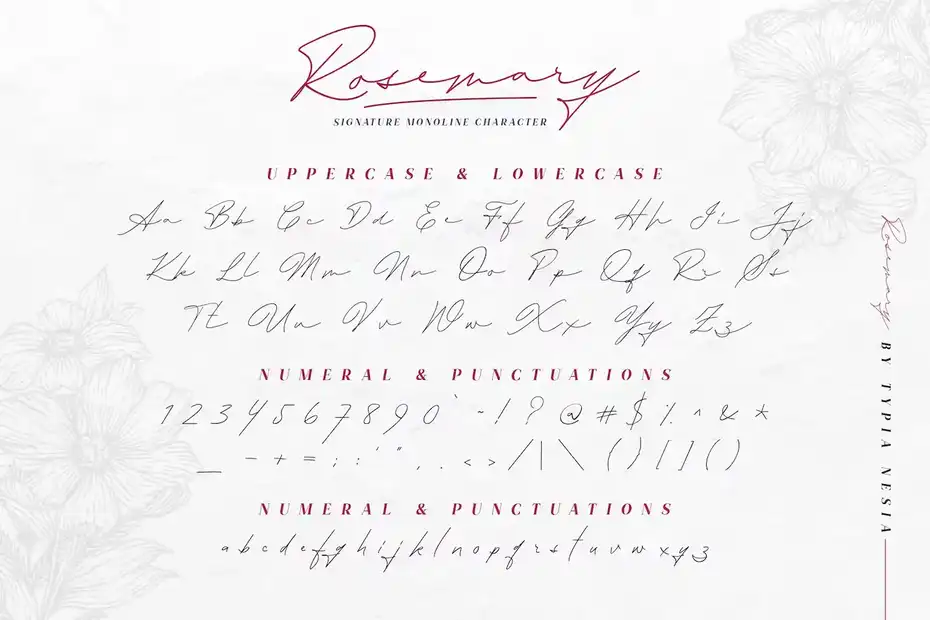 Rosemary
SIGNATURE MONOLINE CHARACTER
UPPERCASE & LOWERCASE
Aa Bb Cc Dd Ee Ff Gg Hh Ii Jj
Kk Ll Mm Nn Oo Pp Qq Rr Ss
Tt Uu Vv Ww Xx Yy Zz
NUMERAL & PUNCTUATIONS
1 2 3 4 5 6 7 8 9 0 ` ~ ! ? @ # $ % ^ & *
_ - + = ; : ' " , . < > / | \ ( ) [ ] ( )
NUMERAL & PUNCTUATIONS
a b c d e f g h i j k l n o p q r s t u v w x y z
Rosemary BY TYPIA NESIA